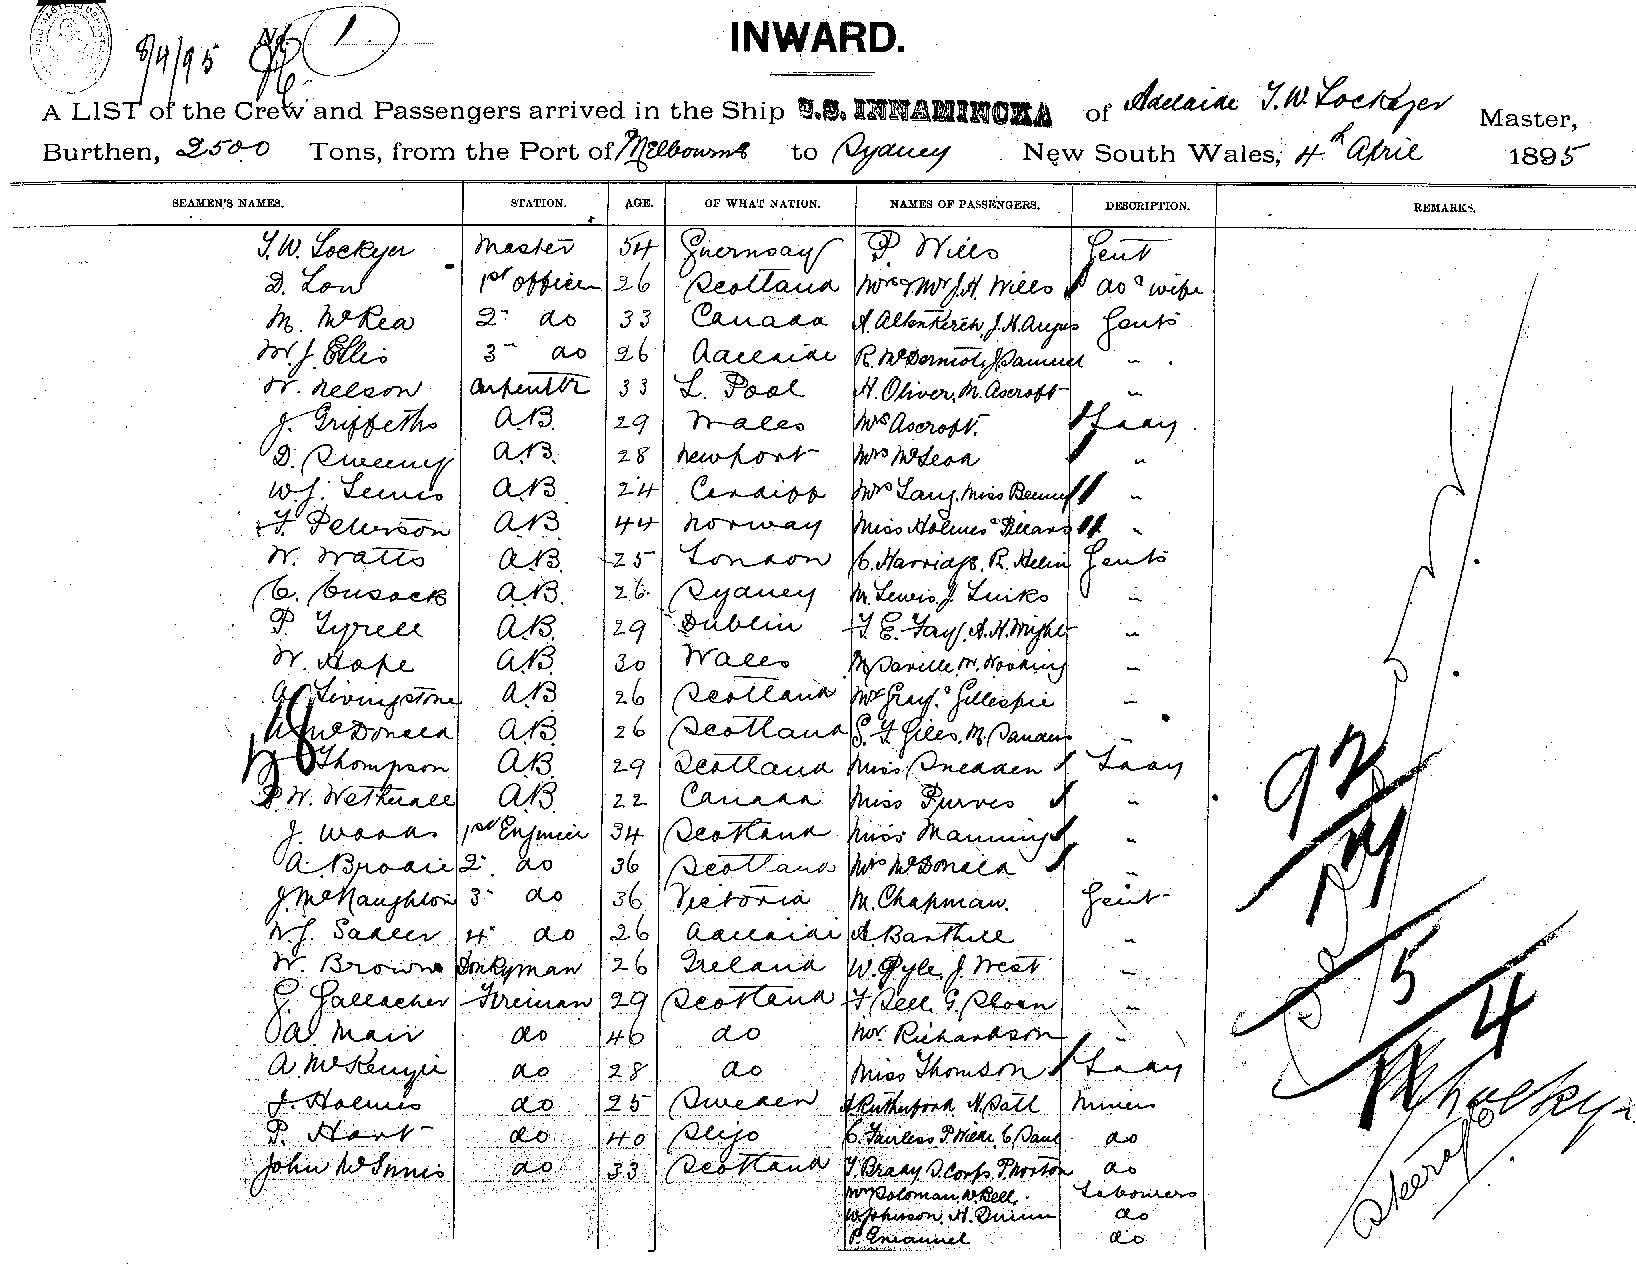 8/4/95 No 1.
INWARD.
A LIST of the Crew and Passengers arrived in the Ship S.S. INNAMINCKA of Adelaide T. W. Lockeyer Master,
Burthen, 2500 Tons, from the Port of Melbourne to Sydney New South Wales, 4th April 1895
SEAMEN'S NAMES. STATION. AGE. OF WHAT NATION. NAMES OF PASSENGERS. DESCRIPTION. REMARKS.
T. W. Lockeyer Master 54 Guernsay P. Wills Gent
D. Low 1st officer 26 Scotland Mrs & Mr J. H. Wills do & wife
M. McRea 2 do 33 Canada A. Altenkerch, J. H. Angus Gents
W. J. Ellis 3 do 26 Adelaide R. McDermot, J. Samuel "
W. Nelson Carpenter 33 L. Pool H. Oliver, M. Ascroft "
J. Griffeths A.B. 29 Wales Mrs Ascroft. Lady
D. Sweeney A.B. 28 Newport Mrs McLeod "
W. J. Lewis A.B. 24 Cardiff Mrs Lang, Miss "
F. Peterson A.B. 44 Norway Miss Holmes & "
W. Watts A.B. 25 London C. Harridge, R. Gents
C. Cusack A.B. 26 Sydney M. Lewis, J. "
P. Tyrell A.B. 29 Dublin F. E. Fay, A. H. Wright "
W. Hope A.B. 30 Wales M. Saville, W. "
A. Livingstone A.B. 26 Scotland Mr Gray & Gillespie "
McDonald A.B. 26 Scotland S. F. Giles, M. Sanders "
Thompson A.B. 29 Scotland Miss Snedden Lady
P. W. Wetherall A.B. 22 Canada Miss Purves "
J. Woods 1st Engineer 34 Scotland Miss Manning "
A. Brodie 2 do 36 Scotland Mrs McDonald "
J. McNaughton 3 do 36 Victoria M. Chapman. Gent
W. J. Sadler 4 do 26 Adelaide A. Barthill "
W. Browne Donkyman 26 Ireland W. Pyle, J. West "
G. Gallacher Fireman 29 Scotland F. Sell, G. Sloan "
A. Mair do 46 do Mr. Richardson "
A. McKenzie do 28 do Miss Thomson Lady
J. Holmes do 25 Sweden A. Rutherford, H. Miners
P. Hart do 40 Sligo C. Fairless, P. C. do
John McInnis do 33 Scotland T. Brady, D. Corps, P. Norton do
Soloman, W. Bell. Labourers
W. Johnson, H. do
P. Emanuel do
92
15
4